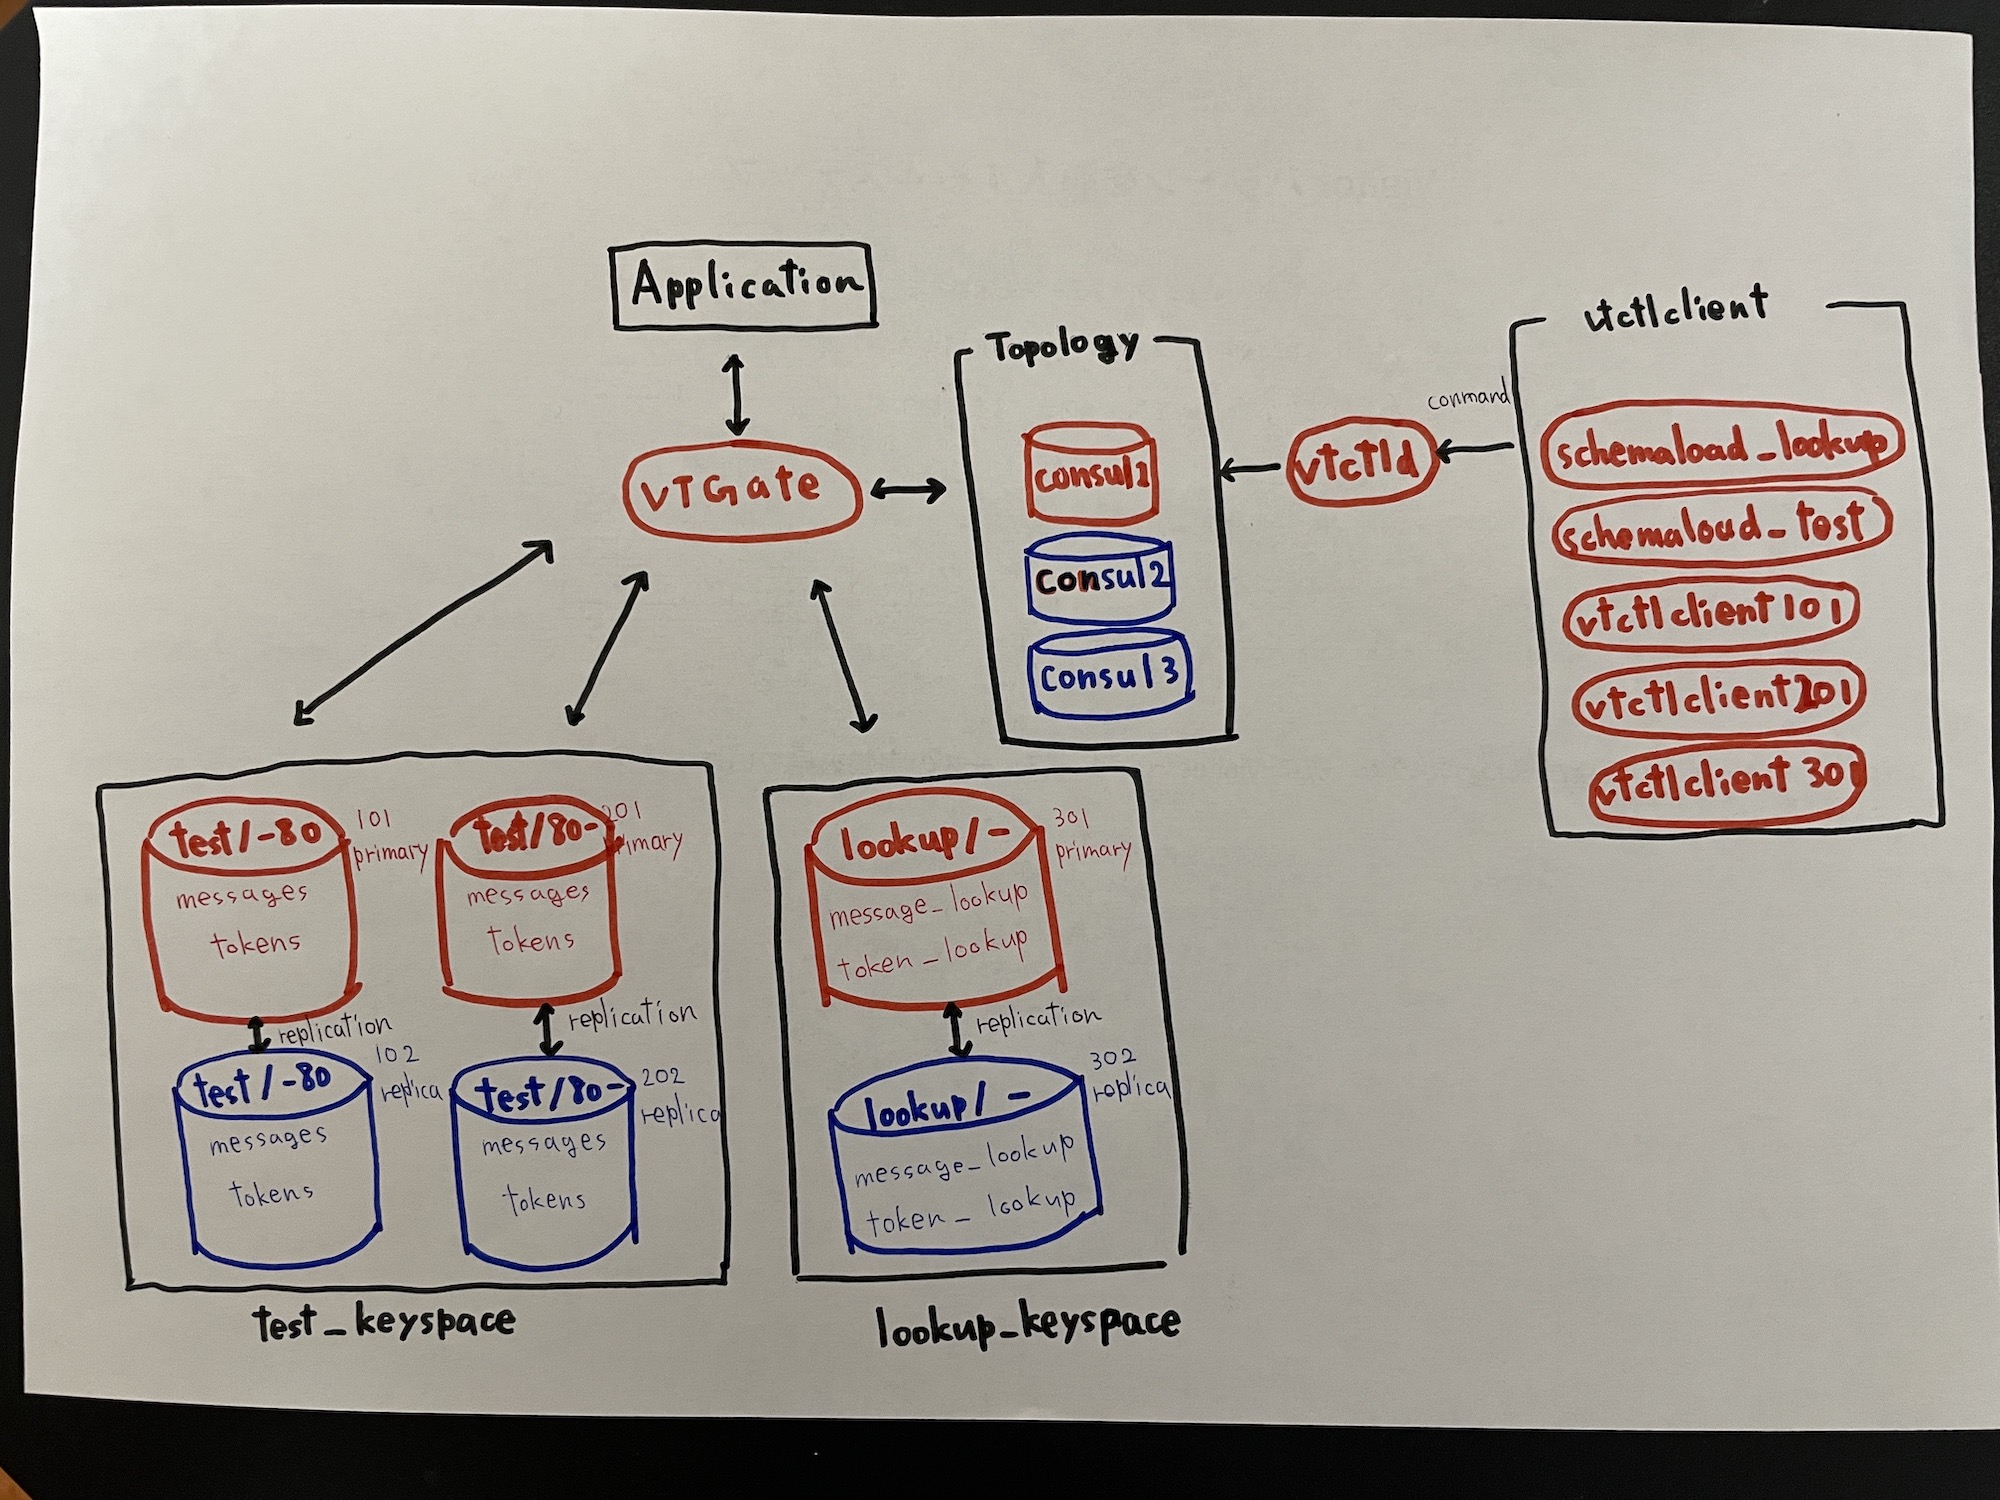 Application
vTGate
Topology
consul1
consul2
consul3
vtctld
command
vtctlclient
schemaload_lookup
schemaload_test
vtctlclient101
vtctlclient201
vtctlclient 301
test/-80
101
primary
messages
tokens
replication
test/-80
102
replica
messages
tokens
test/80-
201
primary
messages
tokens
replication
test/80-
202
replica
messages
tokens
test_keyspace
lookup/-
301
primary
message_lookup
token_lookup
replication
lookup/-
302
replica
message_lookup
token_lookup
lookup_keyspace